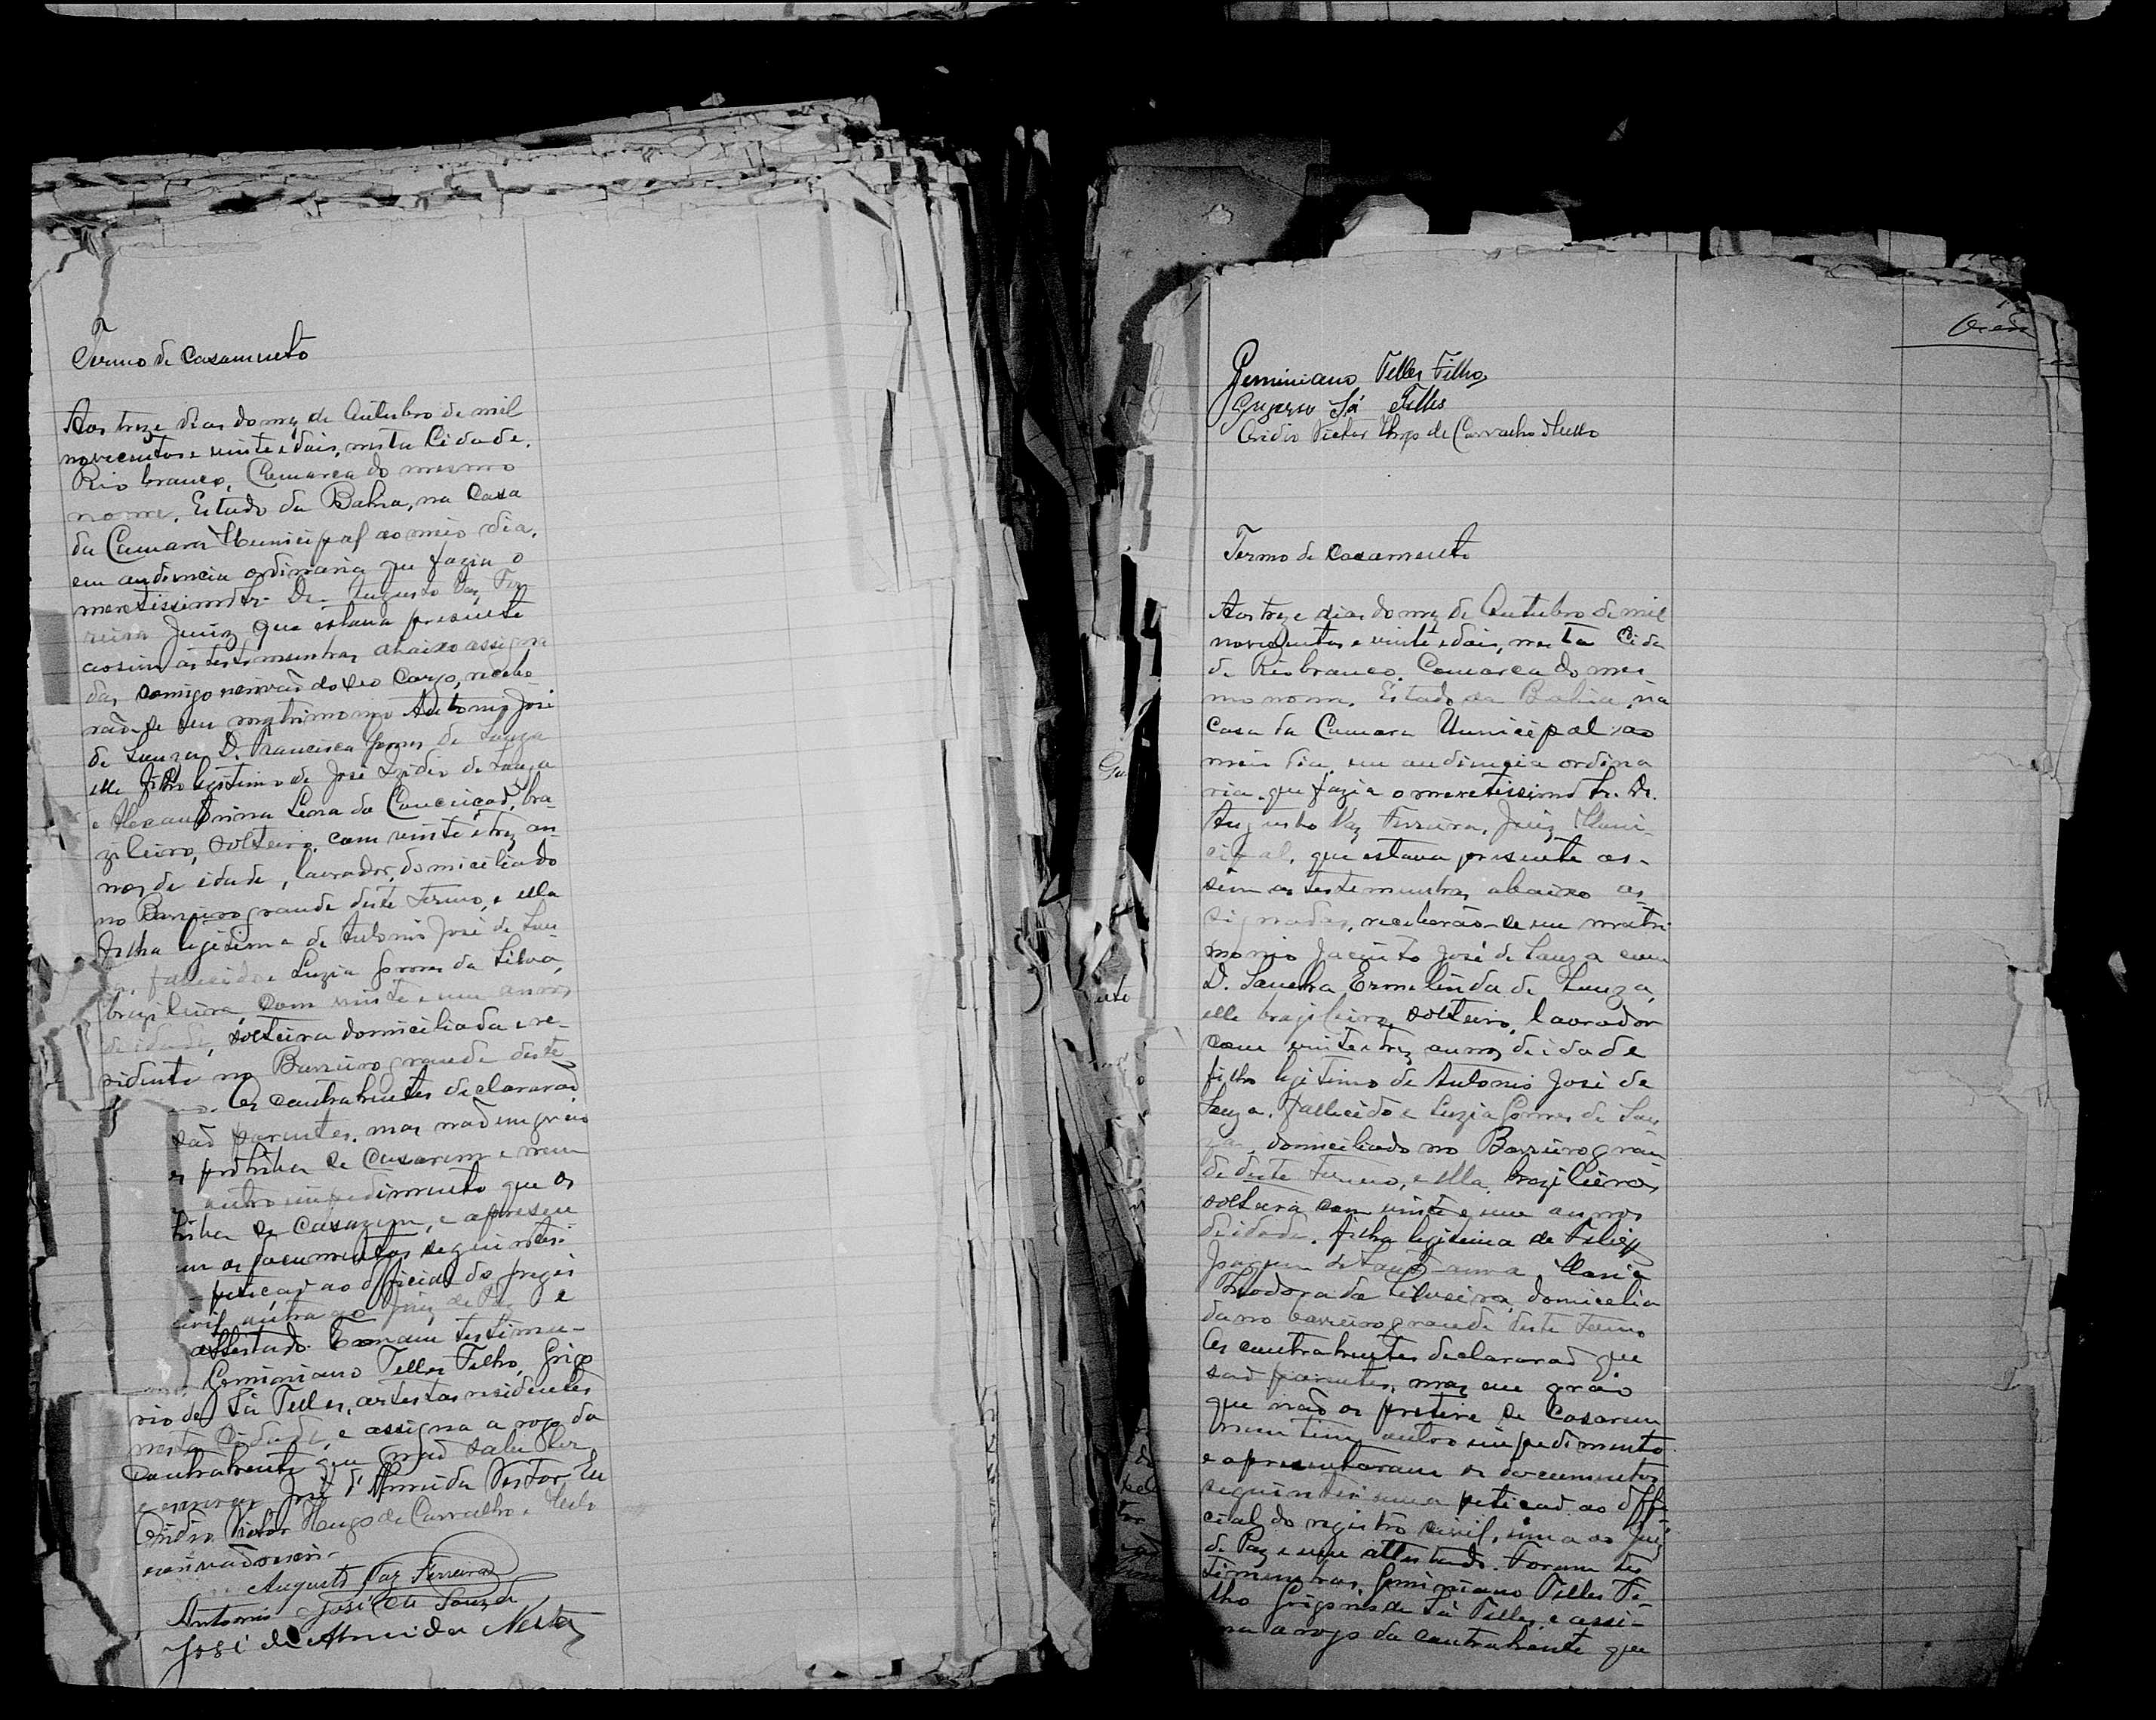 Termo de Casamento
Aos treze dias do mez de Outubro de mil
novecentos e vinte e dois, nesta Cidade,
Rio branco, Comarca do mesmo
nome, Estado da Bahia, na Casa
da Camara Municipal ao meio dia,
em audiencia ordinaria que fazia o
meretissimo Sr. Dr. Augusto Vaz Fer
reira Juiz que estava presente
assim as testemunhas abaixo assigna
das comigo escrivão do seo cargo, recebe
rão-se em matrimonio Antonio José
de Souza D. Francisca Gomes de Souza
elle filho legitimo de José Izidio de Souza
e Alexandrina Lena da Conceição, bra-
zileiro, solteiro, com vinte e trez an
nos de idade, lavrador, domiciliado
no Barreiro grande deste termo, e ella
filha legitima de Antonio José de Sou
fallecido e Luzia Gomes da Silva,
brazileira, com vinte e um annos
de idade, solteira domiciliada e re-
sidente no Barreiro grande deste
Os contrahentes declararão
são parentes, mas não em gráo
prohiba se Casarem e nem
outro impedimento que os
hiba se Casarem, e apresen
am os documentos seguintes:
petição ao official do regis
civil, outra ao Juiz de Paz e
attestado. Foram testemu-
Geminiano Telles Filho, Grigo
rio de Sá Telles, artistas residentes
nesta Cidade, e assigna a rogo da
Contrahente que não sabe ler
e escrever José d'Almeida Nestor Eu
Ovidio Victor Hugo de Carvalho e Mello
escrivão escrevi.
Augusto Vaz Ferreira
Antonio José de Souza
José de Almeida Nestor
Geminiano Telles Filho
Sá Telles
Ovidio Victor Hugo de Carvalho Mello
Termo de Casamento
Aos treze dias do mez de Outubro de mil
novecentos e vinte e dois, nesta Cida
de Rio branco, Comarca do mes
mo nome, Estado da Bahia, na
casa da Camara Municipal ao
meio dia, em audiencia ordina
ria que fazia o meretissimo Sr. Dr.
Augusto Vaz Ferreira, Juiz Muni-
cipal, que estava presente as-
sim as testemunhas abaixo as
signadas, receberão-se em matri
monio Jacinto José de Souza com
D. Sancha Ermelinda de Souza,
elle brazileiro, solteiro, lavrador
com vinte e trez annos de idade
filho legitimo de Antonio José de
Souza, fallecido e Luzia Gomes de Sou
za, domiciliado no Barreiro gran
de deste termo, e ella, brazileira,
solteira com vinte e um annos
de idade, filha legitima de Felix
Joaquim de Sant'anna, Maria
Theodora da Silveira, domicilia
da no barreiro grande deste termo
Os contrahentes declararão que
são parentes, mas em gráo
que não os prohive se Casarem
nem tem outro impedimento
e apresentaram os documentos
seguintes: uma petição ao offi
cial do registro civil, uma ao Juiz
de Paz e um attestado. Foram tes
timunhas, Geminiano Telles Fi-
lho Grigorio de Sá Telles, e assi-
na a rogo da contrahente que